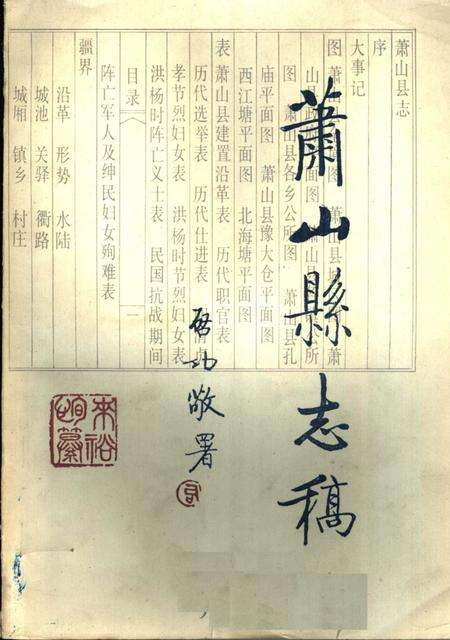 蕭山縣志稿
啟功敬署
來裕恂纂
萧山县志
序
大事记
图 萧山县 萧山县城 萧
山县 面图 公所
图 萧山县各乡公所图 萧山县孔
庙平面图 萧山县豫大仓平面图
西江塘平面图 北海塘平面图
表
萧山县建置沿革表 历代职官表
历代选举表 历代仕进表
孝节烈妇女表 洪杨时节烈妇女表
洪杨时阵亡义士表 民国抗战期间
目录 一
阵亡军人及绅民妇女殉难表
疆界
沿革 形势 水陆
城池 关驿 衢路
城厢 镇乡 村庄